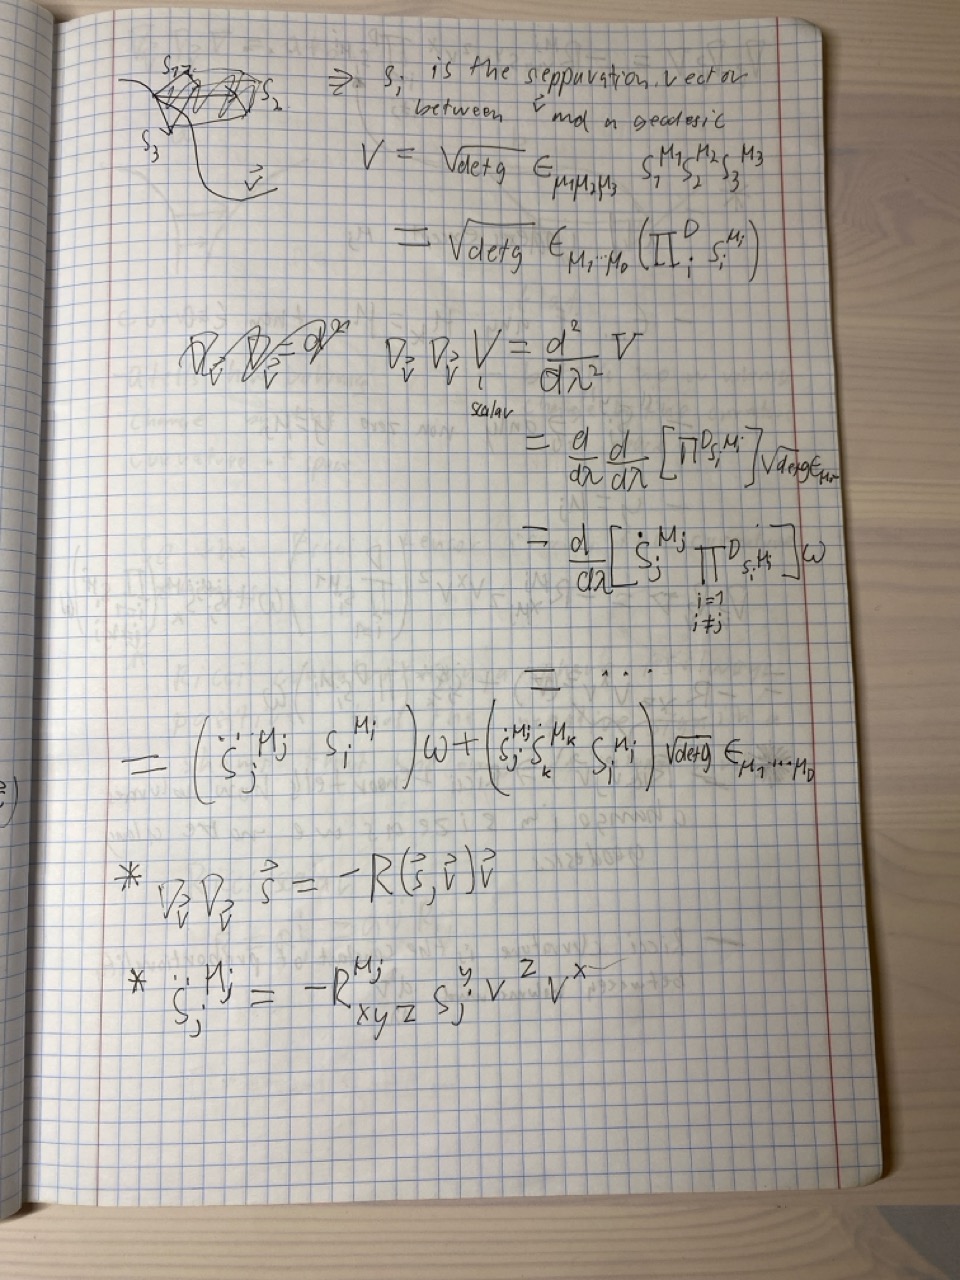 S₁ S₂ S₃ v⃗
⇒ Sᵢ is the seppuration vector
between v⃗ and a geodesic
V = √det g ϵ_{μ₁μ₂μ₃} S₁^{μ₁} S₂^{μ₂} S₃^{μ₃}
= √det g ϵ_{μ₁…μ_D} (∏ᵢ^D Sᵢ^{μᵢ})
∇_v⃗ ∇_v⃗ V = d²/dλ² V
scalar
= d/dλ d/dλ [∏^D Sᵢ^{μᵢ}] √det g ϵ_{μ…}
= d/dλ [Ṡⱼ^{μⱼ} ∏^D_{i=1, i≠j} Sᵢ^{μᵢ}] ω
= ...
= (S̈ⱼ^{μⱼ} Sᵢ^{μᵢ}) ω + (Ṡⱼ^{μⱼ} Ṡₖ^{μₖ} Sᵢ^{μᵢ}) √det g ϵ_{μ₁....μ_D}
* ∇_v⃗ ∇_v⃗ s⃗ = -R(s⃗, v⃗)v⃗
* S̈ⱼ^{μⱼ} = -R^{μⱼ}_{xyz} Sⱼ^y V^z V^x